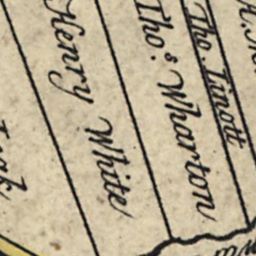 Henry White
Tho.s Wharton
Tho. Timott